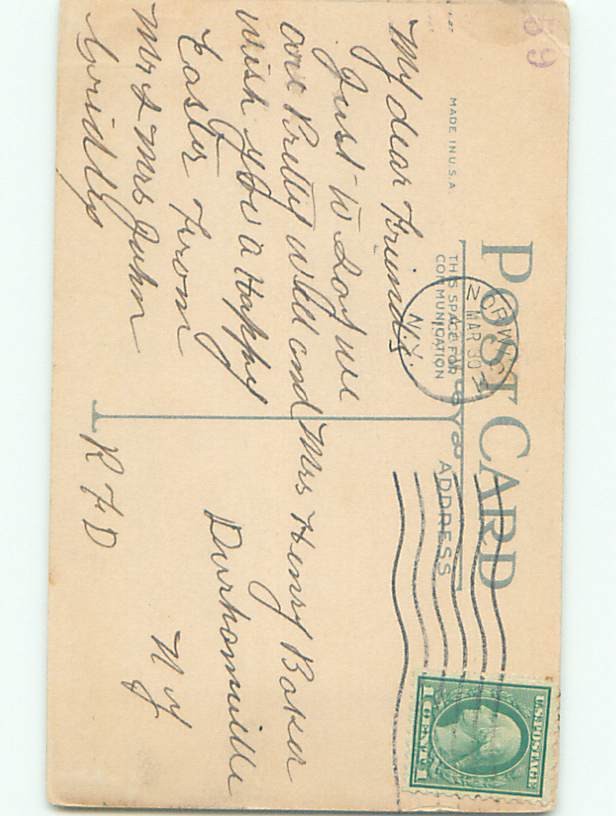 59
MADE IN U.S.A.
POST CARD
THIS SPACE FOR
COMMUNICATION
ADDRESS
MAR 30
N.Y.
U.S. POSTAGE
1 CENT 1
My dear Friends
Just to Say we
are Pretty well and
wish you a Happy
Easter From
Mr & Mrs John
Gridley
Mrs Henry Baker
Durhamville
N Y
R F D